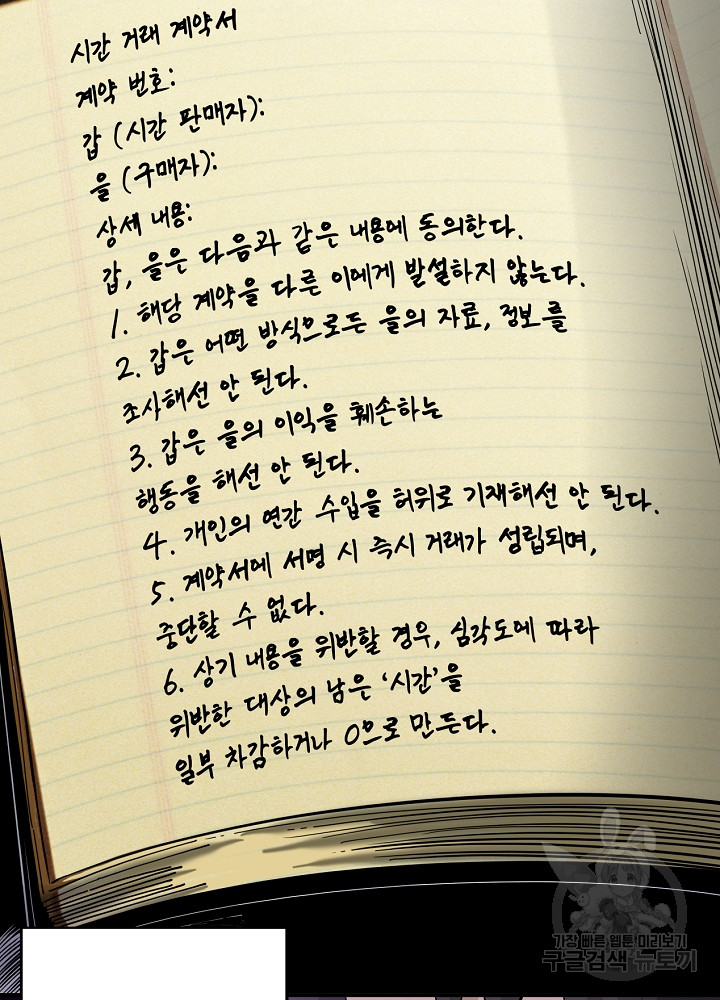 시간 거래 계약서
계약 번호:
갑 (시간 판매자):
을 (구매자):
상세 내용:
갑, 을은 다음과 같은 내용에 동의한다.
1. 해당 계약을 다른 이에게 발설하지 않는다.
2. 갑은 어떤 방식으로든 을의 자료, 정보를
조사해선 안 된다.
3. 갑은 을의 이익을 훼손하는
행동을 해선 안 된다.
4. 개인의 연간 수입을 허위로 기재해선 안 된다.
5. 계약서에 서명 시 즉시 거래가 성립되며,
중단할 수 없다.
6. 상기 내용을 위반할 경우, 심각도에 따라
위반한 대상의 남은 '시간'을
일부 차감하거나 0으로 만든다.
가장 빠른 웹툰 미리보기
구글검색 뉴토끼